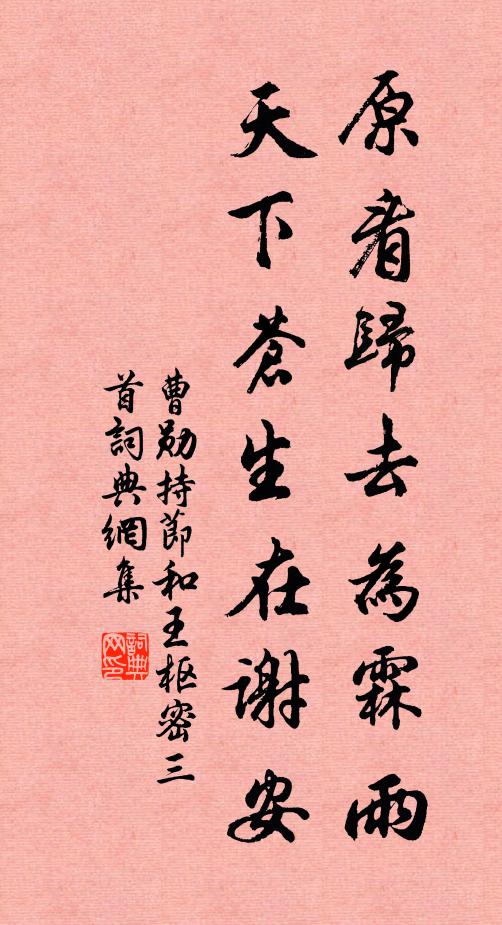 原看歸去為霖雨
天下蒼生在謝安
曹勛持節和王枢密三
首詞典網集
詞典
网印